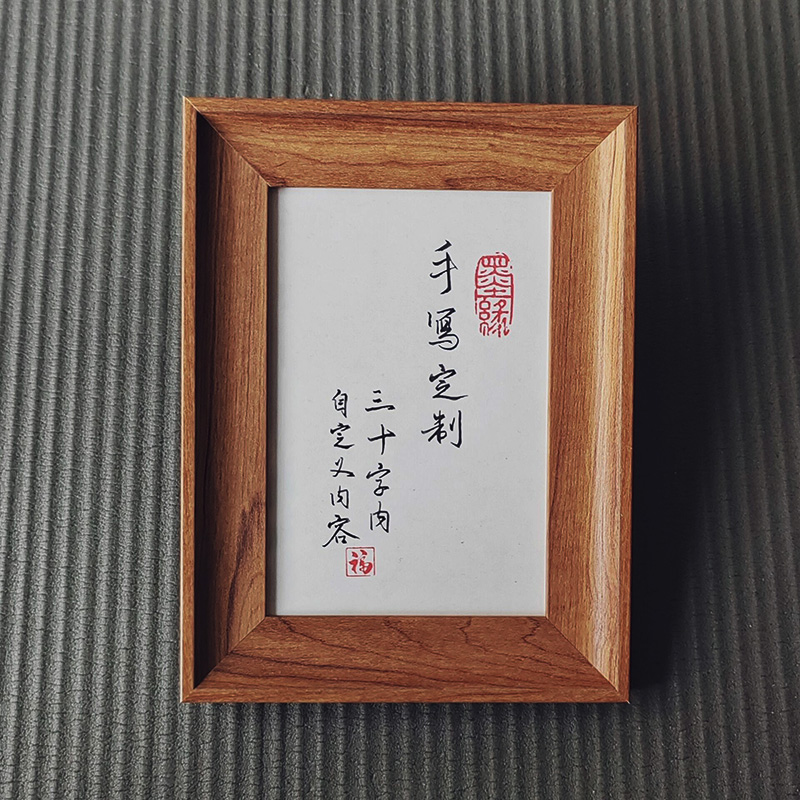 墨缘
手写定制
三十字内
自定义内容
福